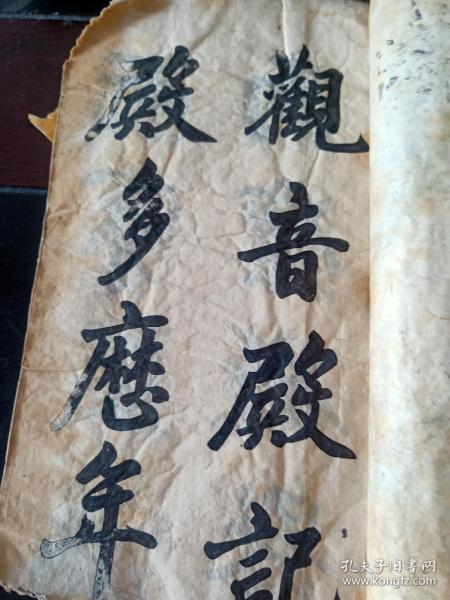 觀音殿記
殿多歷年
孔夫子旧书网
www.kongfz.com